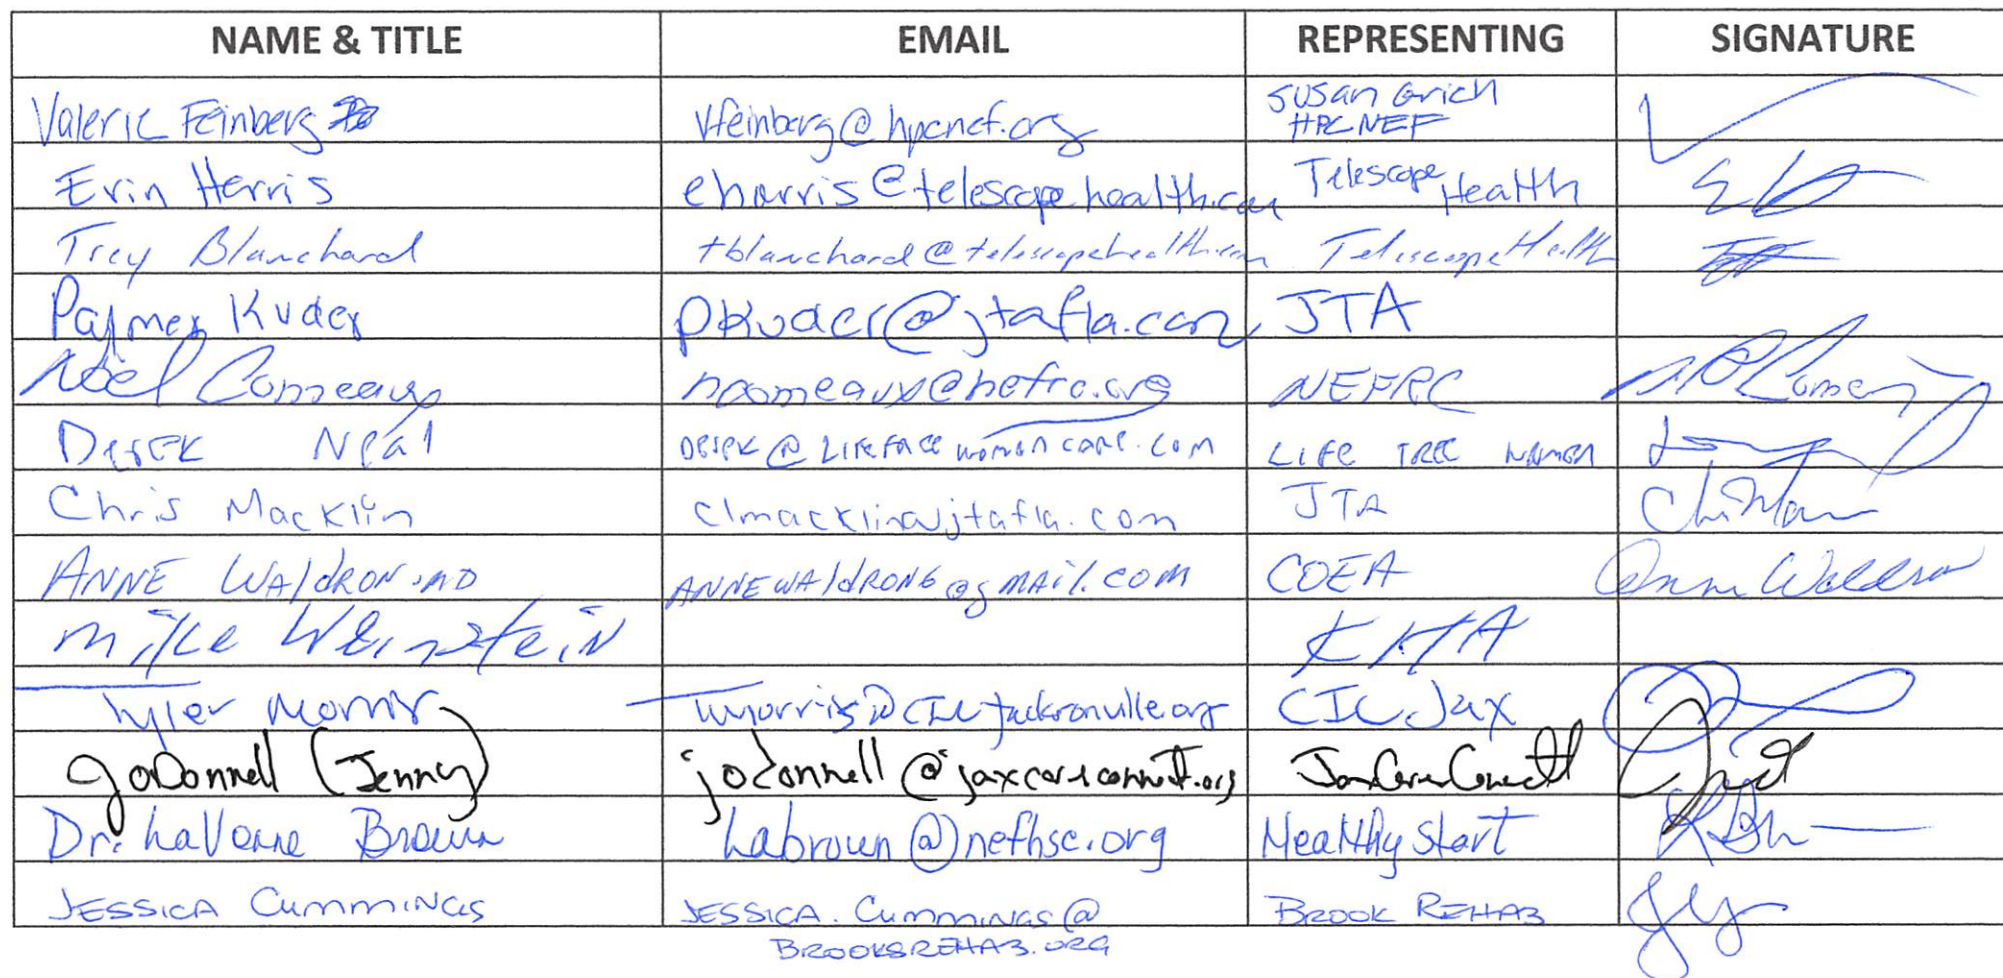 NAME & TITLE EMAIL REPRESENTING SIGNATURE
Valerie Feinberg vfeinberg@hpcnef.org Susan Grich
HPCNEF
Erin Harris eharris@telescopehealth.com Telescope Health
Trey Blanchard tblanchard@telescopehealth.com Telescope Health
Palmer Kuder pkuder@jtafla.com JTA
Noel Comeaux ncomeaux@nefrc.org NEFRC
Derek Neal LIFE TREE WOMEN
Chris Macklin clmacklin@jtafla.com JTA
ANNE WALDRON, MD ANNEWALDRON6@gmail.com COEA
Mike Weinstein KHA
Tyler Morris Tmorris@CILJacksonville.org CIL Jax
JODonnell (Jenny) jodonnell@jaxcareconnect.org JaxCareConnect
Dr. LaVonne Brown Labrown@nefhsc.org Healthy Start
JESSICA CUMMINGS JESSICA.CUMMINGS@ BROOK REHAB
BROOKSREHAB.ORG